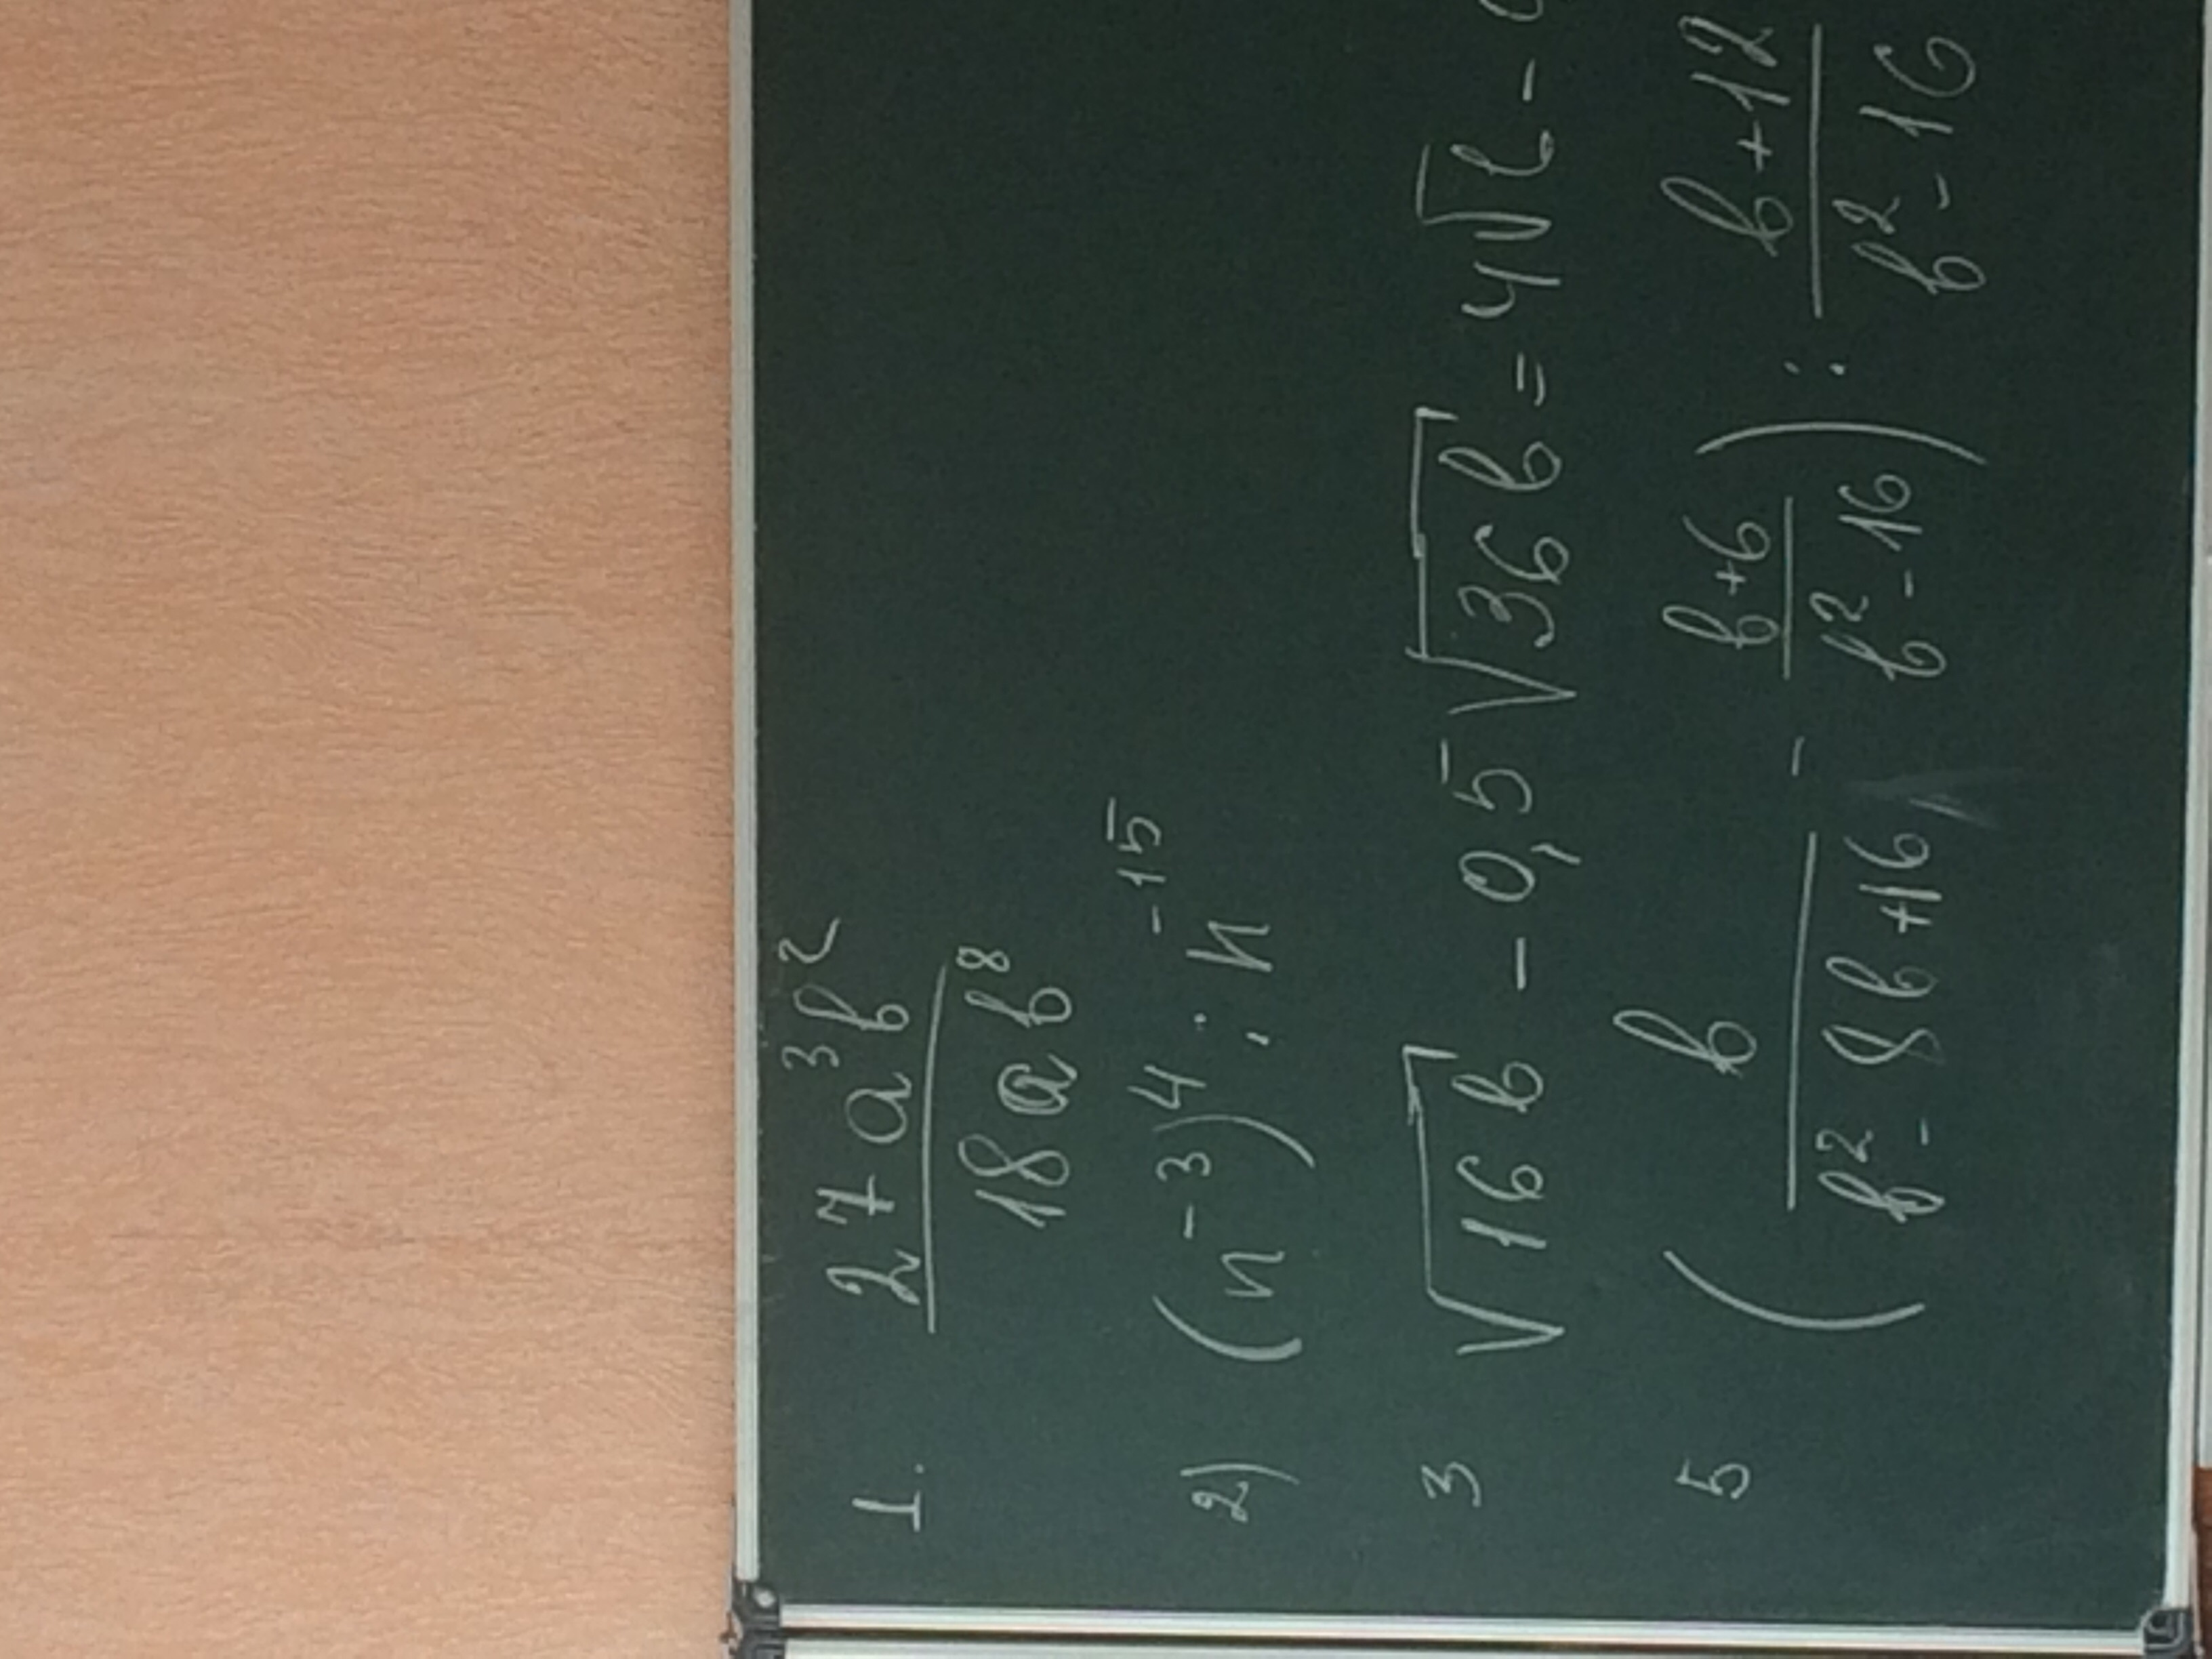 1. 27a³b² / 18ab⁸
2) (n⁻³)⁴ : n⁻¹⁵
3 √16b - 0,5√36b = 4√b -
5 (b / b² - 8b + 16 - b + 6 / b² - 16) : b + 12 / b² - 16